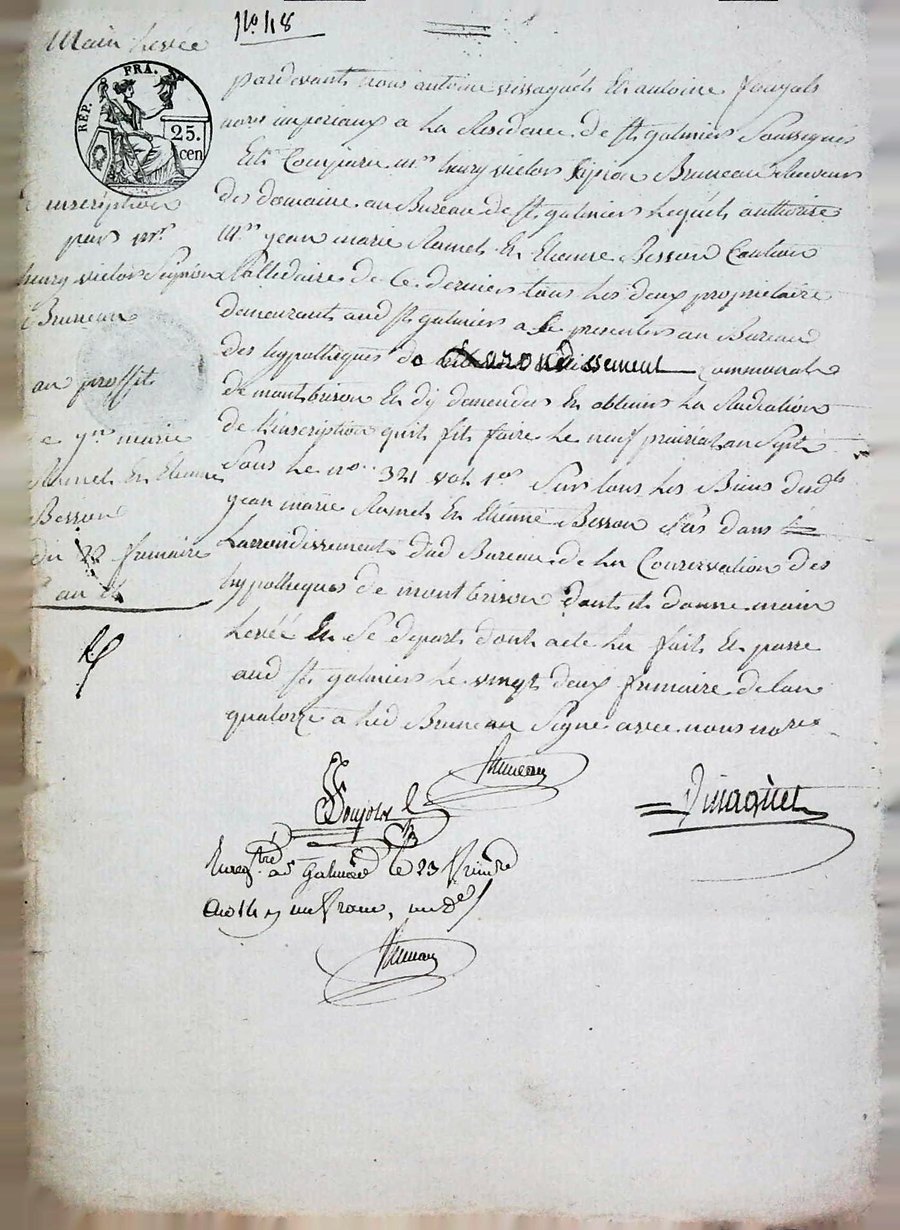 No. 48
Main Levée
RÉP. FRA.
25.
cen
d'inscription
par mr.
henry victor Sipion
Bruneau
au proffit
de jn. marie
Ramel Et Etienne
Besson
du 22 frimaire
an 14
pardevant nous antoine vissaguet Et antoine foujols
nores imperiaux a La Residence de st. galmier Soussignés
Est Comparu mr. henry victor Sipion Bruneau Receveur
des domaine au Bureau de st. galmier Lequel authorise
Mrs. jean marie Ramel Et Etienne Besson Caution
Sollidaire de Ce dernier tous Les deux proprietaire
demeurant aud st. galmier a Se presenter au Bureau
des hypotheques de Larondissement communal
de montbrison Et d'y demander Et obtenir La Radiation
de L'inscription qu'il fit faire Le neuf prairial an Sept
Sous Le no. 321 vol 1er Sur tous Les Biens desdts
jean marie Ramel Et Etienne Besson Sis dans
Larrondissement dud Bureau de La Conservation des
hypotheques de montbrison dont il donne main
Levée Et Se depart dont acte Lu fait Et passé
aud st. galmier Le vingt deux frimaire de lan
quatorze a Led Bruneau Signé avec nous nores
Bruneau
Foujols
Vissaguet
Enregtré a St Galmier le 23 frimre
An 14 un franc,
Bruneau